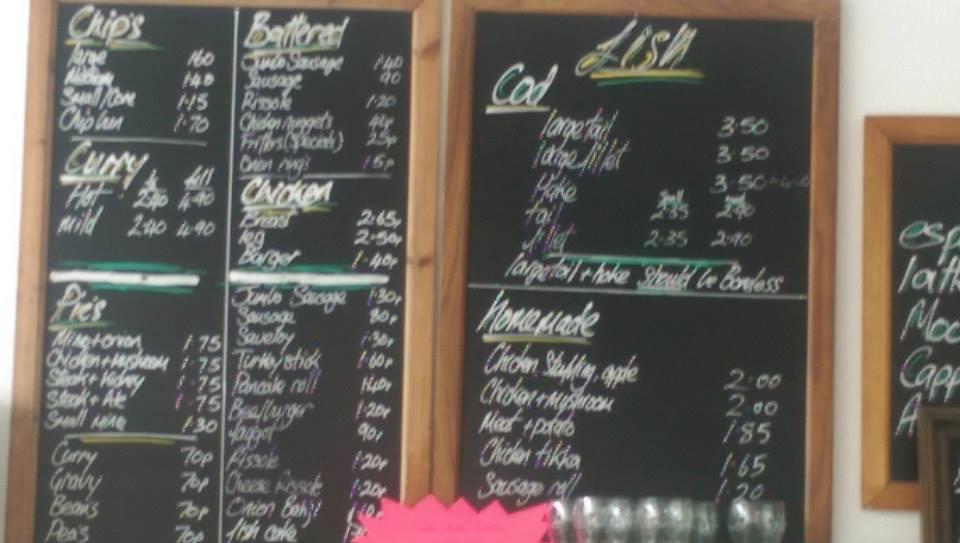 Chip's
Large 160
Medium 1·40
Small/Cone 1·15
Chip bun 1·70
Curry
Hot 2·40 4·90
Mild 2·40 4·90
Pie's
Mince+onion 1·75
Chicken+Mushroom 1·75
Steak+kidney 1·75
Steak+Ale 1·75
Small Mince 1·30
Curry 70p
Gravy 70p
Beans 70p
Pea's 70p
Battered
Jumbo Sausage 1·40
Sausage 90
Rissole 1·20
Chicken nuggets
Fritters (Specials) 25p
Onion rings 15p
Chicken
Breast 2·65p
leg 2·50p
Burger 1·40p
Jumbo Sausage 1·30p
Sausage 80p
Saveloy 1·30p
Turkey stick 1·60p
Pancake roll 1·40p
Beefburger 1·20p
faggot 90p
Rissole 1·20p
Cheese Rissole 1·20p
Onion Bahji
fish cake
FISH
Cod
large tail 3·50
large fillet 3·50
Hake 3·50
tail Small 2·35 2·90
fillet 2·35 2·90
large tail + hake Should be Boneless
Homemade
Chicken Stuffing, apple 2·00
Chicken+Mushroom 2·00
Meat + potato 1·85
Chicken tikka 1·65
Sausage roll 1·20
esp
latt
Moc
Capp
A